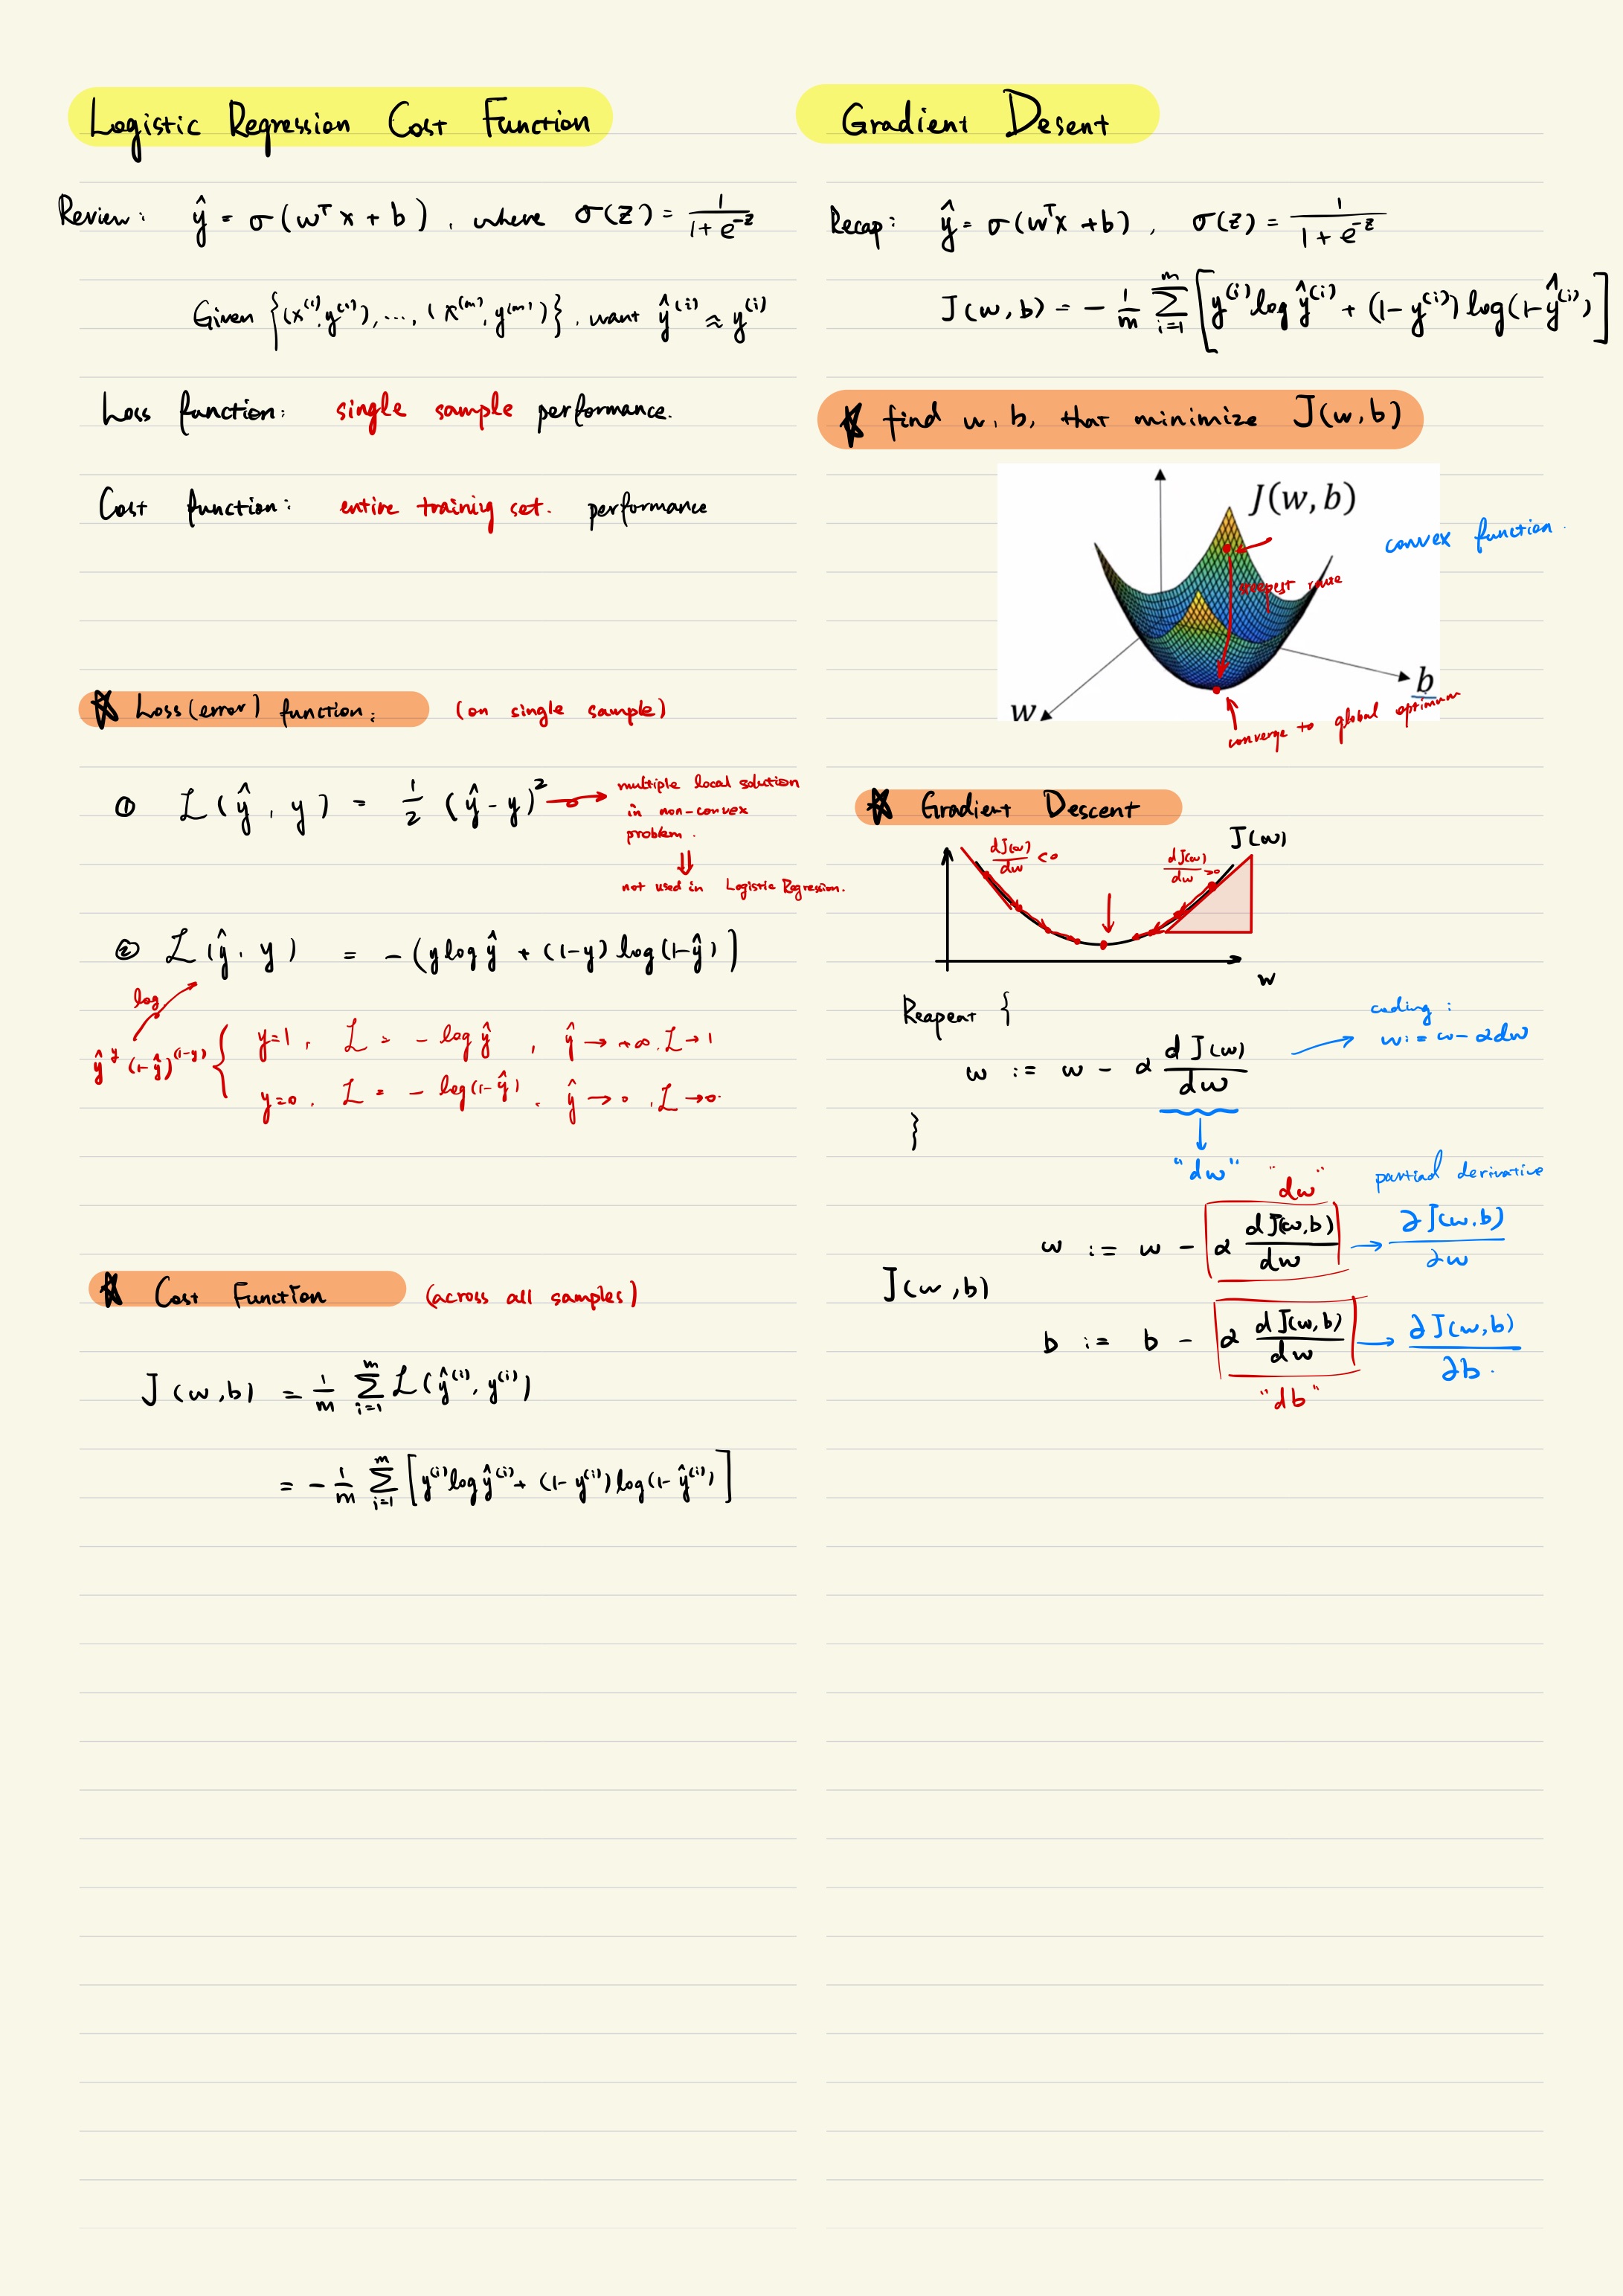 Logistic Regression Cost Function
Review: ŷ = σ(wᵀx + b), where σ(z) = 1/(1+e⁻ᶻ)
Given {(x⁽¹⁾, y⁽¹⁾), ..., (x⁽ᵐ⁾, y⁽ᵐ⁾)}, want ŷ⁽ⁱ⁾ ≈ y⁽ⁱ⁾
Loss function: single sample performance.
Cost function: entire training set. performance
☆ Loss(error) function: (on single sample)
① L(ŷ, y) = 1/2 (ŷ - y)² →
multiple local solution
in non-convex
problem.
⇓
not used in Logistic Regression.
② L(ŷ, y) = -(y log ŷ + (1-y) log(1-ŷ))
log
ŷ^y (1-ŷ)^(1-y) {
y=1, L = - log ŷ, ŷ → +∞. L → 1
y=0. L = - log(1-ŷ). ŷ → 0. L → 0.
☆ Cost Function (across all samples)
J(w,b) = 1/m Σᵢ₌₁ᵐ L(ŷ⁽ⁱ⁾, y⁽ⁱ⁾)
= - 1/m Σᵢ₌₁ᵐ [y⁽ⁱ⁾ log ŷ⁽ⁱ⁾ + (1- y⁽ⁱ⁾) log(1- ŷ⁽ⁱ⁾)]
Gradient Desent
Recap: ŷ = σ(wᵀx + b), σ(z) = 1/(1+e⁻ᶻ)
J(w,b) = - 1/m Σᵢ₌₁ᵐ [y⁽ⁱ⁾ log ŷ⁽ⁱ⁾ + (1- y⁽ⁱ⁾) log(1- ŷ⁽ⁱ⁾)]
☆ find w, b, that minimize J(w,b)
J(w, b)
convex function.
w
b
converge to global optimum
☆ Gradient Descent
J(w)
dJ(w)/dw <0
dJ(w)/dw >0
w
Reapeat {
w := w - α dJ(w)/dw
coding:
w := w - αdw
}
"dw"
"dw"
partial derivative
J(w,b)
w := w - α dJ(w,b)/dw → ∂J(w,b)/∂w
b := b - α dJ(w,b)/dw → ∂J(w,b)/∂b.
"db"